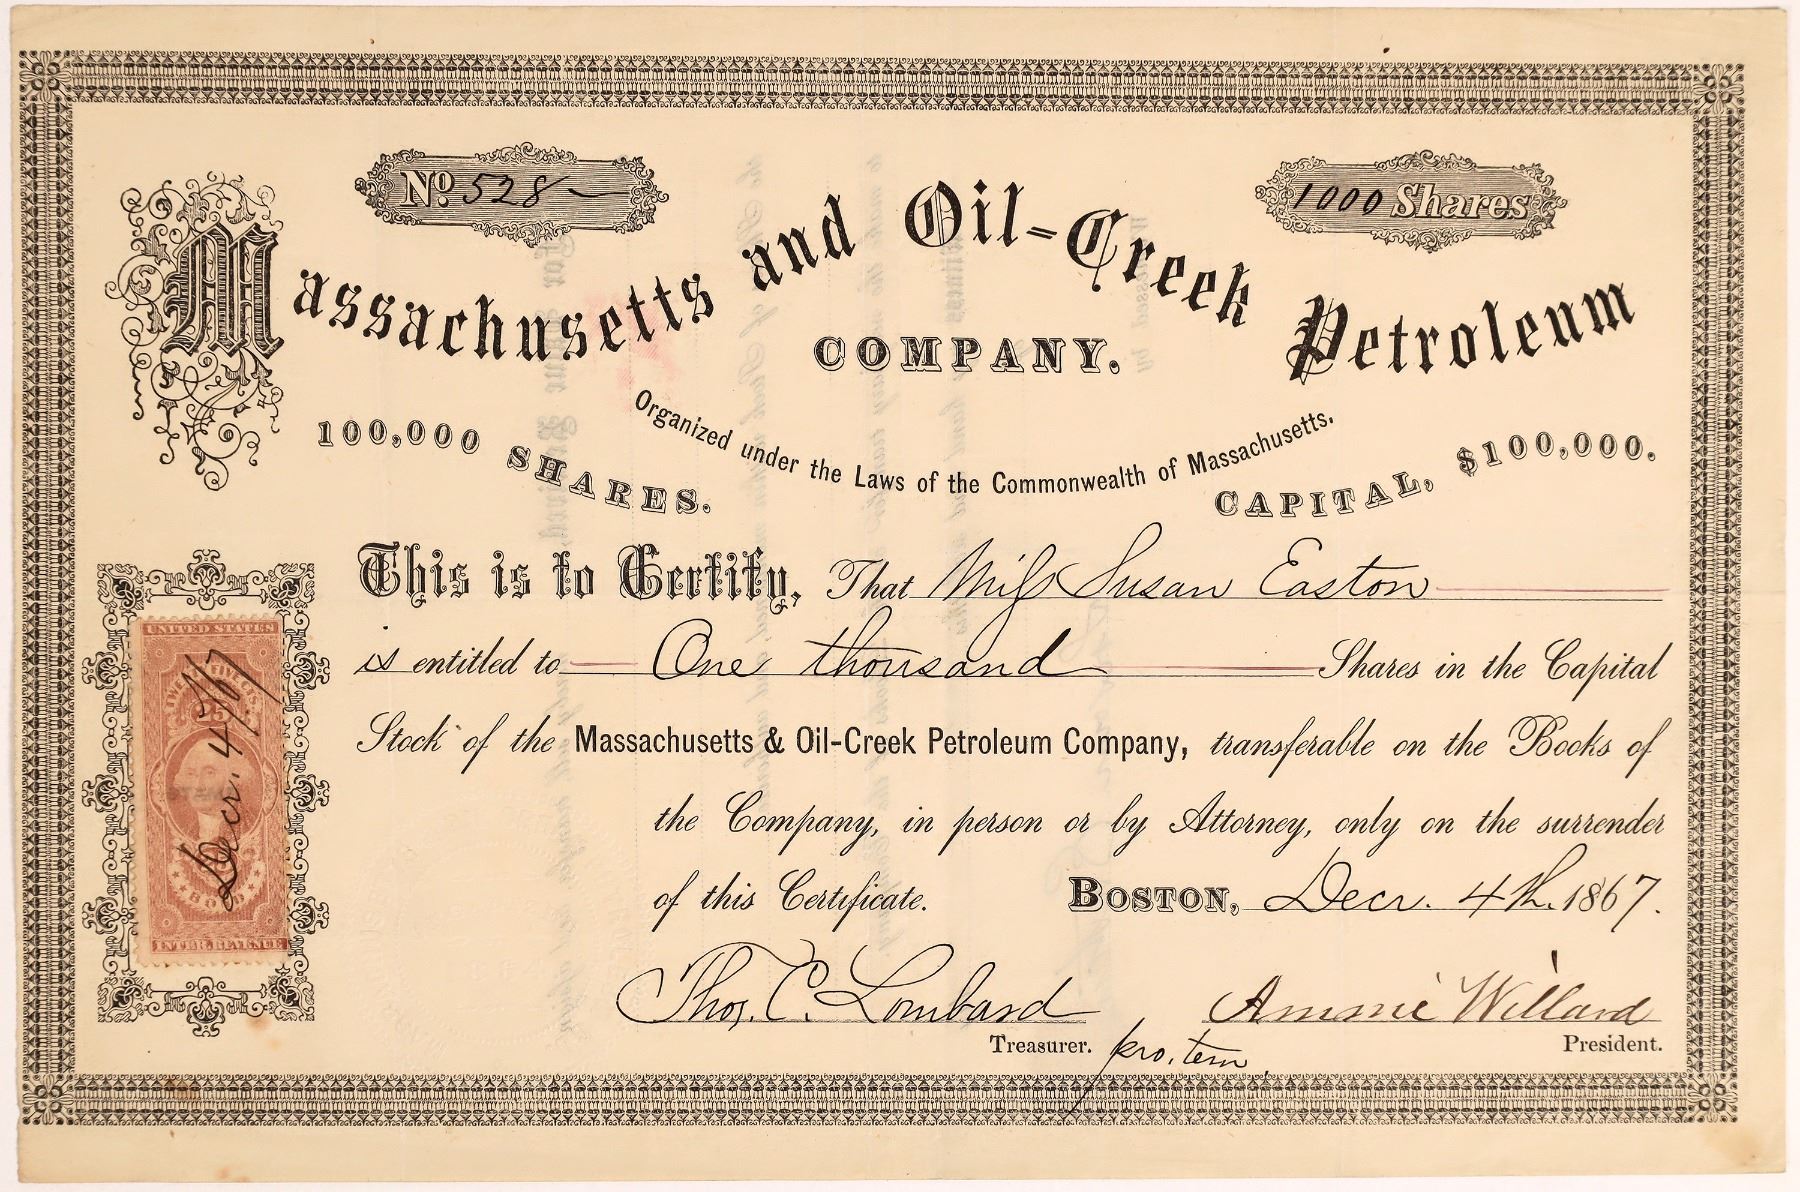 No. 528
1000 Shares
Massachusetts and Oil-Creek Petroleum
COMPANY.
Organized under the Laws of the Commonwealth of Massachusetts.
100,000 SHARES.
CAPITAL, $100,000.
This is to Certify, That Miss Susan Easton
is entitled to One thousand Shares in the Capital
Stock of the Massachusetts & Oil-Creek Petroleum Company, transferable on the Books of
the Company, in person or by Attorney, only on the surrender
of this Certificate. BOSTON, Decr. 4th. 1867.
Thos. C. Lombard
Ammie Willard
Treasurer. pro. tem
President.
UNITED STATES
25
Decr. 4/67
BOND
INTER. REVENUE